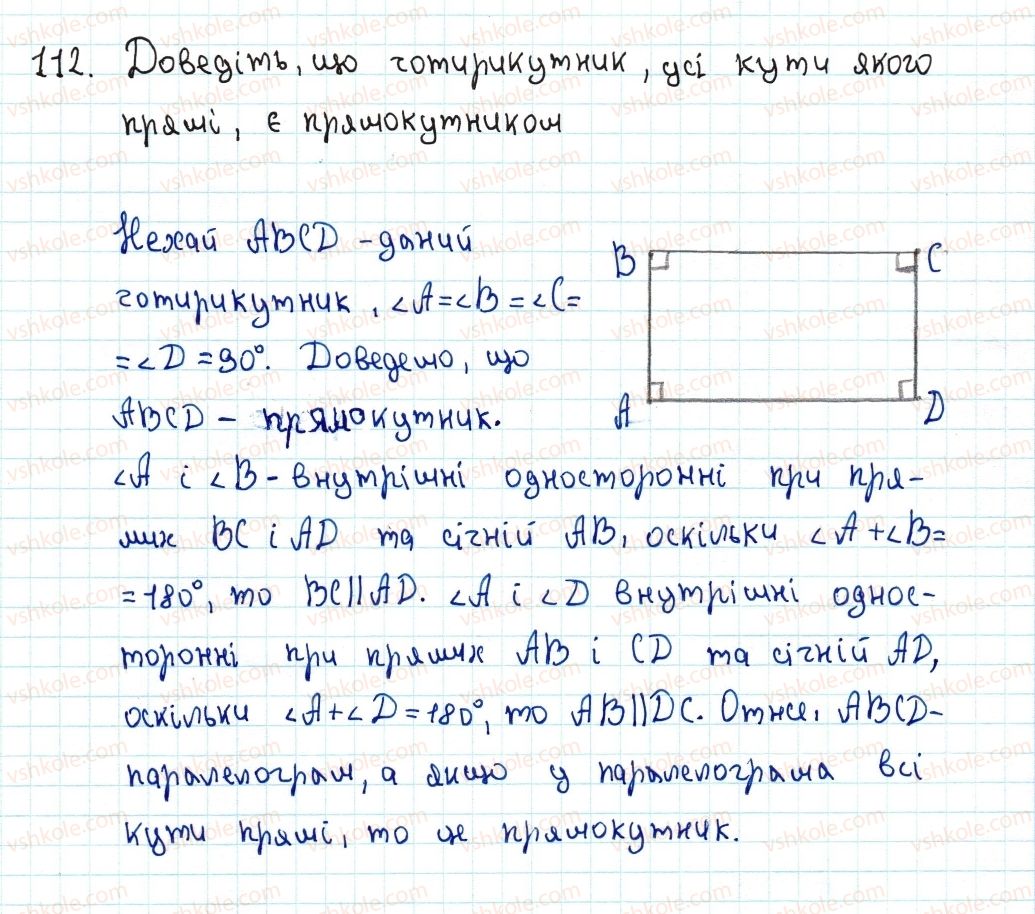 112. Доведіть, що чотирикутник, усі кути якого
прямі, є прямокутником
Нехай ABCD - даний
чотирикутник, ∠A=∠B=∠C=
=∠D=90°. Доведемо, що
ABCD - прямокутник.
B
C
A
D
∠A і ∠B - внутрішні односторонні при пря-
мих BC і AD та січній AB, оскільки ∠A+∠B=
=180°, то BC||AD. ∠A і ∠D внутрішні однос-
торонні при прямих AB і CD та січній AD,
оскільки ∠A+∠D=180°, то AB||DC. Отже, ABCD-
паралелограм, а якщо у паралелограма всі
кути прямі, то це прямокутник.